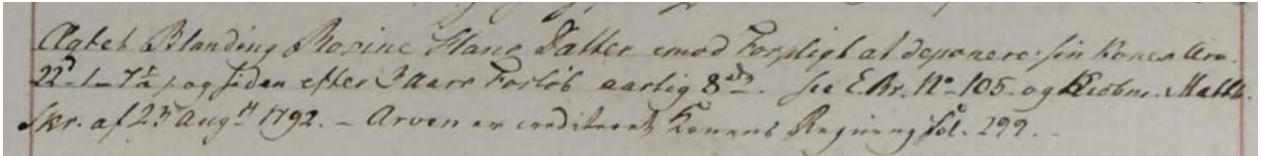 Ægtet Blanding Rosine Hans Datter imod Forpligt at deponere sin Kones Arv.
22 rd 1 - 7 1/2 s og siden efter 3 Aars Forløb aarlig 8 rd. see E. Br. No 105 og Kiøbm. Matth.
Skr. af 23 Augst 1792. - Arven er crediteret Konens Regning fol. 299.